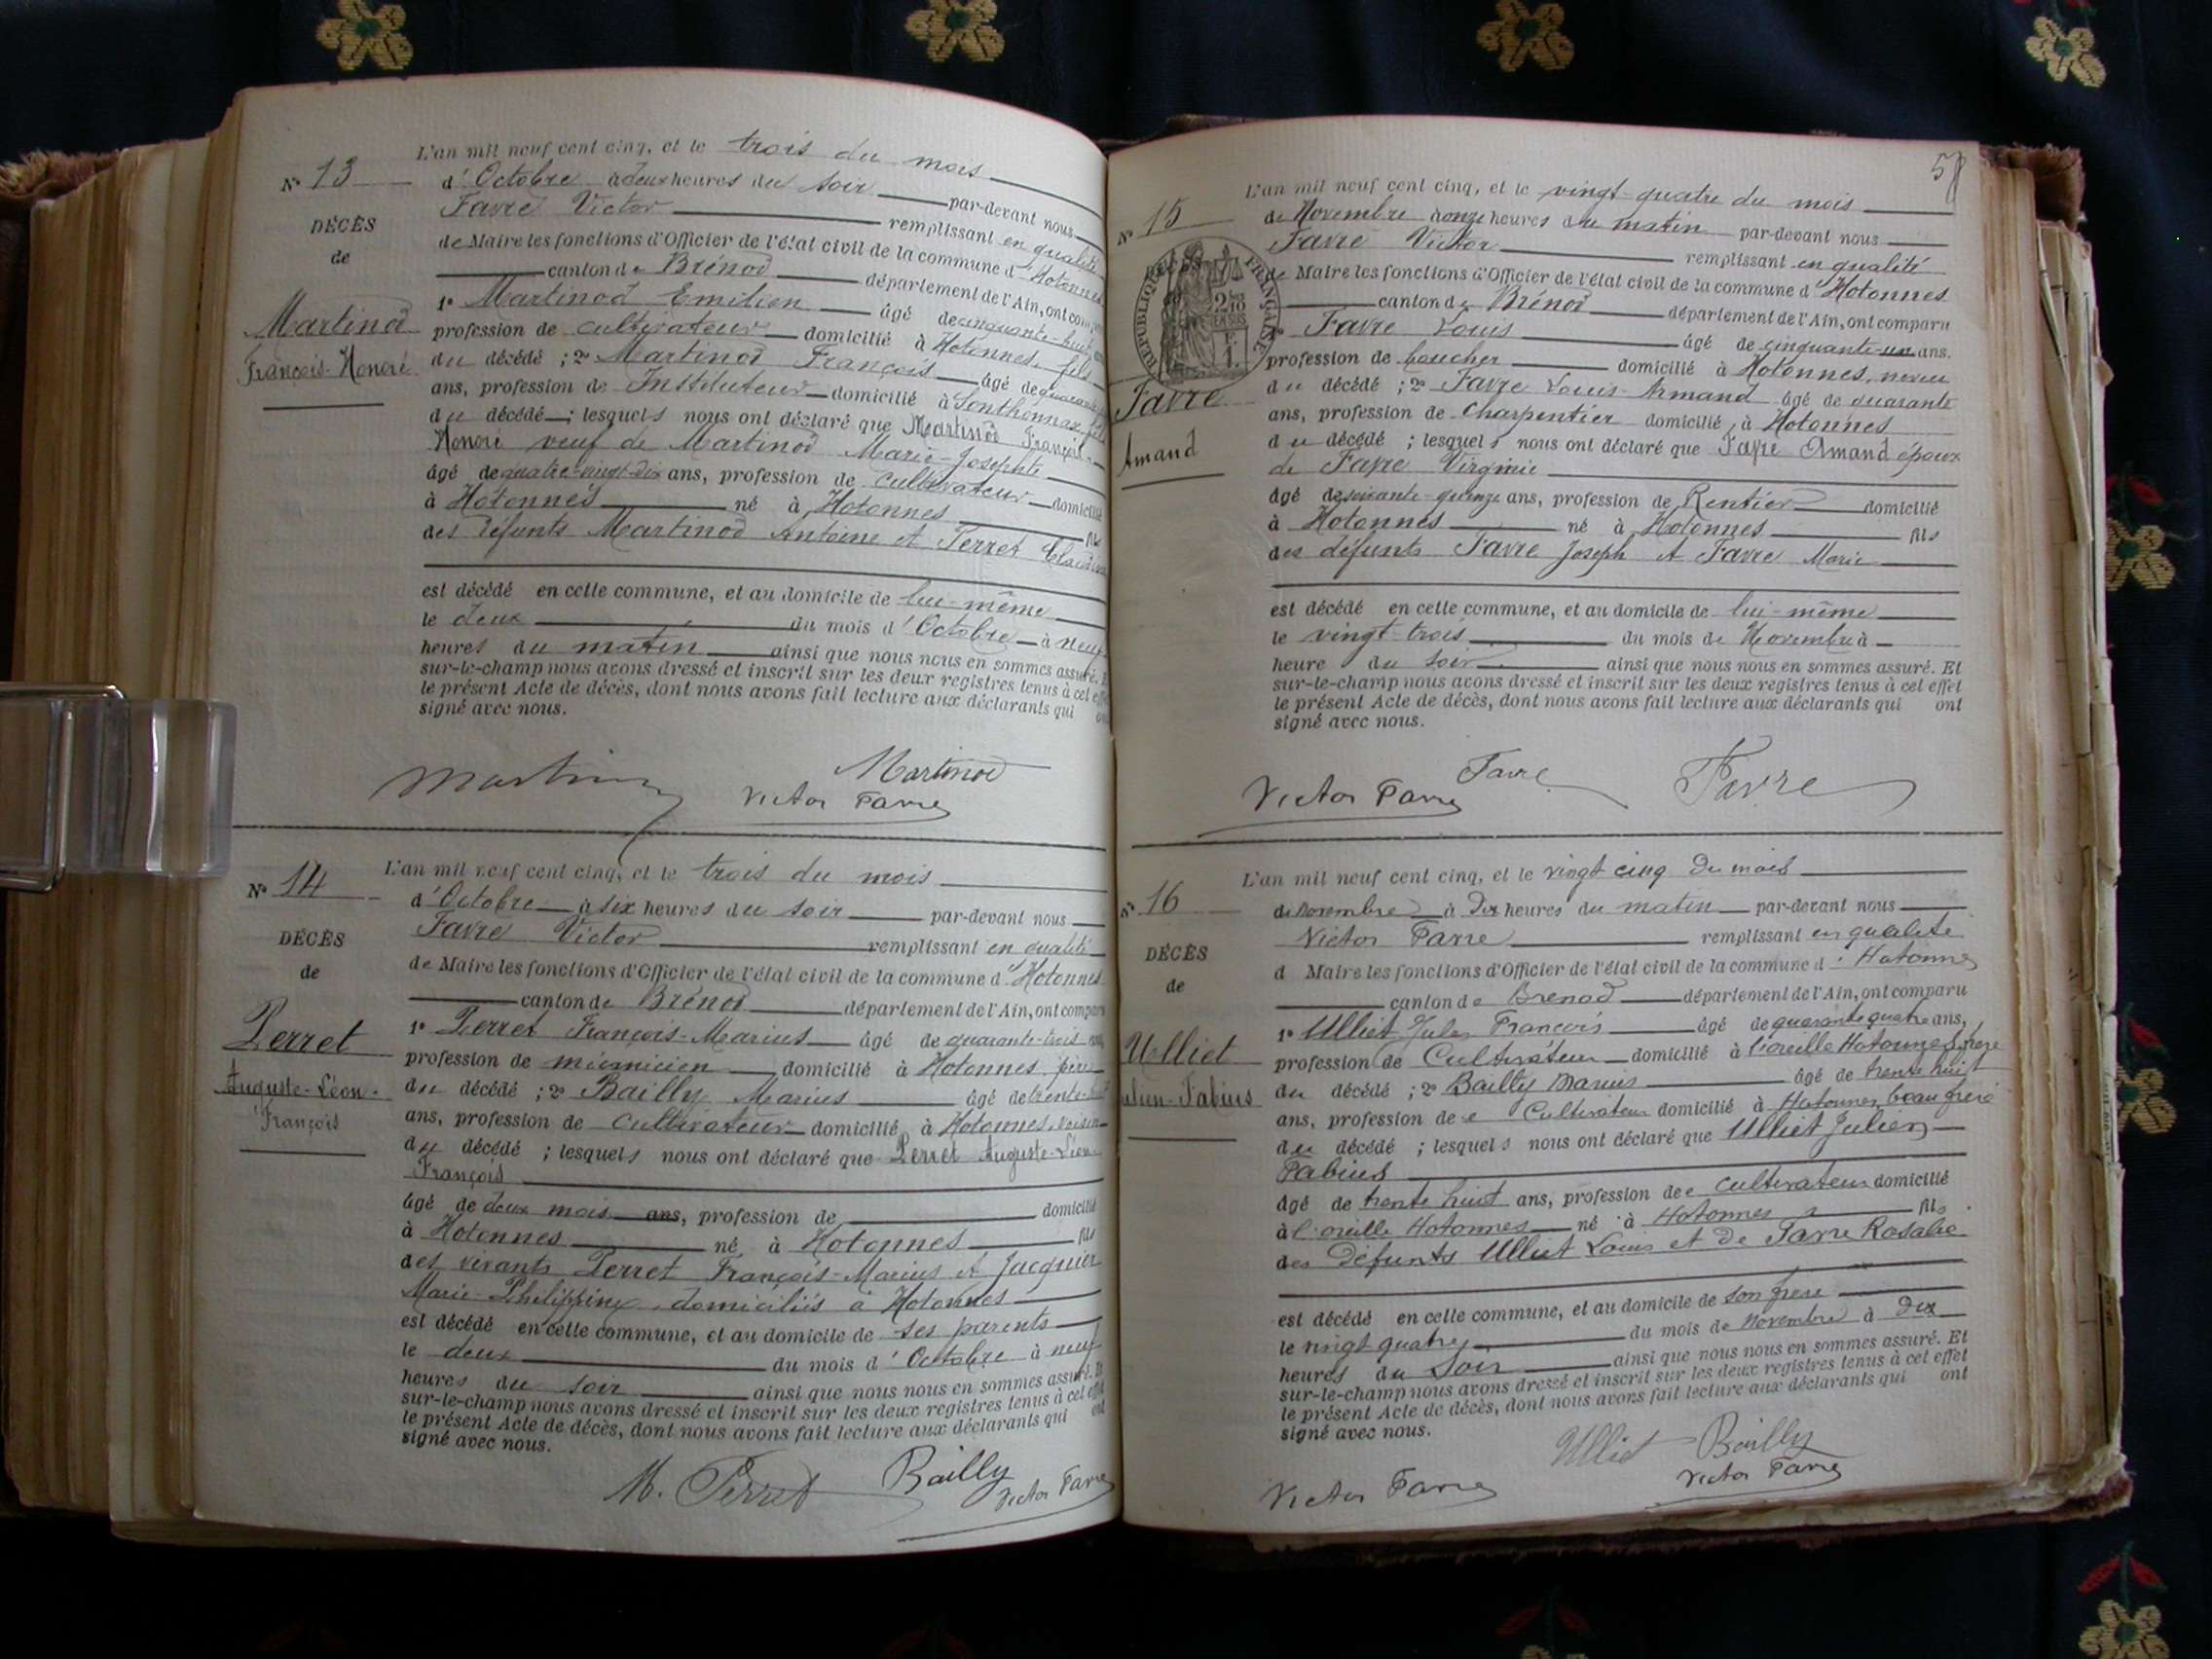 N° 13
DÉCÈS
de
Martinod
François-Honoré
L'an mil neuf cent cinq, et le trois du mois
d'Octobre à deux heures du soir par-devant nous
Favre Victor remplissant en qualité
de Maire les fonctions d'Officier de l'état civil de la commune d'Hotonnes
canton de Brénod département de l'Ain, ont comparu
1° Martinod Emilien âgé de cinquante-huit
profession de cultivateur domicilié à Hotonnes, fils
du décédé ; 2° Martinod François âgé de quarante
ans, profession de Instituteur domicilié à Sonthonnax, fils
du décédé ; lesquels nous ont déclaré que Martinod François
Honoré veuf de Martinod Marie-Josephte
âgé de quatre-vingt-dix ans, profession de cultivateur domicilié
à Hotonnes né à Hotonnes fils
des défunts Martinod Antoine et Perret
est décédé en cette commune, et au domicile de lui-même
le deux du mois d'Octobre à neuf
heures du matin ainsi que nous nous en sommes assuré. Et
sur-le-champ nous avons dressé et inscrit sur les deux registres tenus à cet effet
le présent Acte de décès, dont nous avons fait lecture aux déclarants qui ont
signé avec nous.
Martinod
Victor Favre
N° 14
DÉCÈS
de
Perret
Auguste-Léon-
François
L'an mil neuf cent cinq, et le trois du mois
d'Octobre à six heures du soir par-devant nous
Favre Victor remplissant en qualité
de Maire les fonctions d'Officier de l'état civil de la commune d'Hotonnes
canton de Brénod département de l'Ain, ont comparu
1° Perret François-Marius âgé de quarante-trois ans,
profession de mécanicien domicilié à Hotonnes père
du décédé ; 2° Bailly Marius âgé de trente-huit
ans, profession de cultivateur domicilié à Hotonnes, voisin
du décédé ; lesquels nous ont déclaré que Perret Auguste-Léon
François
âgé de deux mois ans, profession de domicilié
à Hotonnes né à Hotonnes fils
des vivants Perret François-Marius et Jacquier
Marie-Philippine domiciliés à Hotonnes
est décédé en cette commune, et au domicile de ses parents
le deux du mois d'Octobre à neuf
heures du soir ainsi que nous nous en sommes assuré. Et
sur-le-champ nous avons dressé et inscrit sur les deux registres tenus à cet effet
le présent Acte de décès, dont nous avons fait lecture aux déclarants qui ont
signé avec nous.
M. Perret Bailly
Victor Favre
N° 15
RÉPUBLIQUE FRANÇAISE
Favre
Amand
L'an mil neuf cent cinq, et le vingt-quatre du mois
de Novembre à onze heures du matin par-devant nous
Favre Victor remplissant en qualité
de Maire les fonctions d'Officier de l'état civil de la commune d'Hotonnes
canton de Brénod département de l'Ain, ont comparu
Favre Louis âgé de cinquante-un ans.
profession de boucher domicilié à Hotonnes, neveu
du décédé ; 2° Favre Louis-Armand âgé de quarante
ans, profession de Charpentier domicilié à Hotonnes
du décédé ; lesquels nous ont déclaré que Favre Amand époux
de Favre Virginie
âgé de soixante-quinze ans, profession de Rentier domicilié
à Hotonnes né à Hotonnes fils
des défunts Favre Joseph et Favre Marie
est décédé en cette commune, et au domicile de lui-même
le vingt-trois du mois de Novembre à
heure du soir ainsi que nous nous en sommes assuré. Et
sur-le-champ nous avons dressé et inscrit sur les deux registres tenus à cet effet
le présent Acte de décès, dont nous avons fait lecture aux déclarants qui ont
signé avec nous.
Victor Favre Favre Favre
N° 16
DÉCÈS
de
Ulliet
Julien-Fabius
L'an mil neuf cent cinq, et le vingt cinq du mois
de Novembre à Dix heures du matin par-devant nous
Victor Favre remplissant en qualité
d Maire les fonctions d'Officier de l'état civil de la commune d'Hotonnes
canton de Brenod département de l'Ain, ont comparu
1° Ulliet Jules François âgé de quarante quatre ans,
profession de Cultivateur domicilié à l'oreille Hotonnes, frère
du décédé ; 2° Bailly Marius âgé de trente huit
ans, profession de Cultivateur domicilié à Hotonnes beau frère
du décédé ; lesquels nous ont déclaré que Ulliet Julien
Fabius
âgé de trente huit ans, profession de cultivateur domicilié
à l'oreille Hotonnes né à Hotonnes fils
des Défunts Ulliet Louis et de Favre Rosalie
est décédé en cette commune, et au domicile de son frère
le vingt quatre du mois de Novembre à Dix
heures du Soir ainsi que nous nous en sommes assuré. Et
sur-le-champ nous avons dressé et inscrit sur les deux registres tenus à cet effet
le présent Acte de décès, dont nous avons fait lecture aux déclarants qui ont
signé avec nous.
Ulliet Bailly
Victor Favre Victor Favre